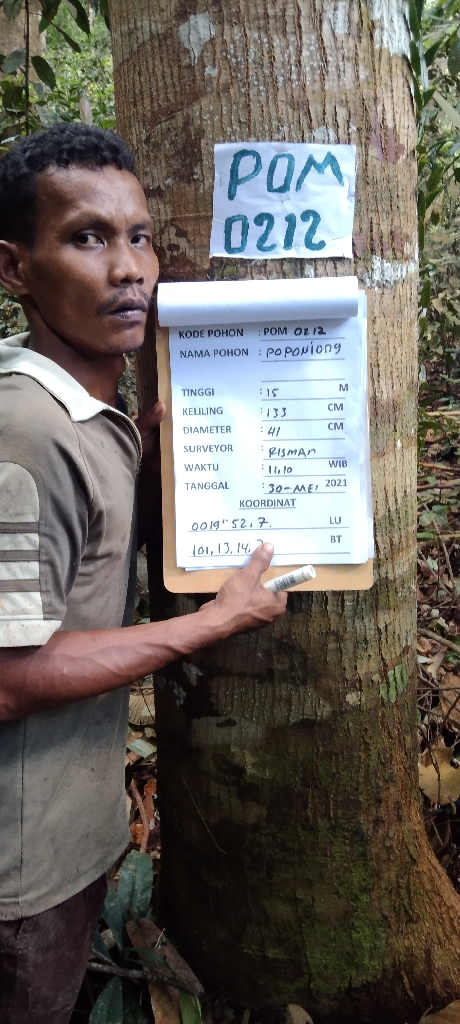 POM
0212
KODE POHON : POM 0212
NAMA POHON : POPONIONG
TINGGI : 15 M
KELILING : 133 CM
DIAMETER : 41 CM
SURVEYOR : RISMAN
WAKTU : 11.10 WIB
TANGGAL : 30-MEI 2021
KOORDINAT
0019" 52,7. LU
101,13,14, BT